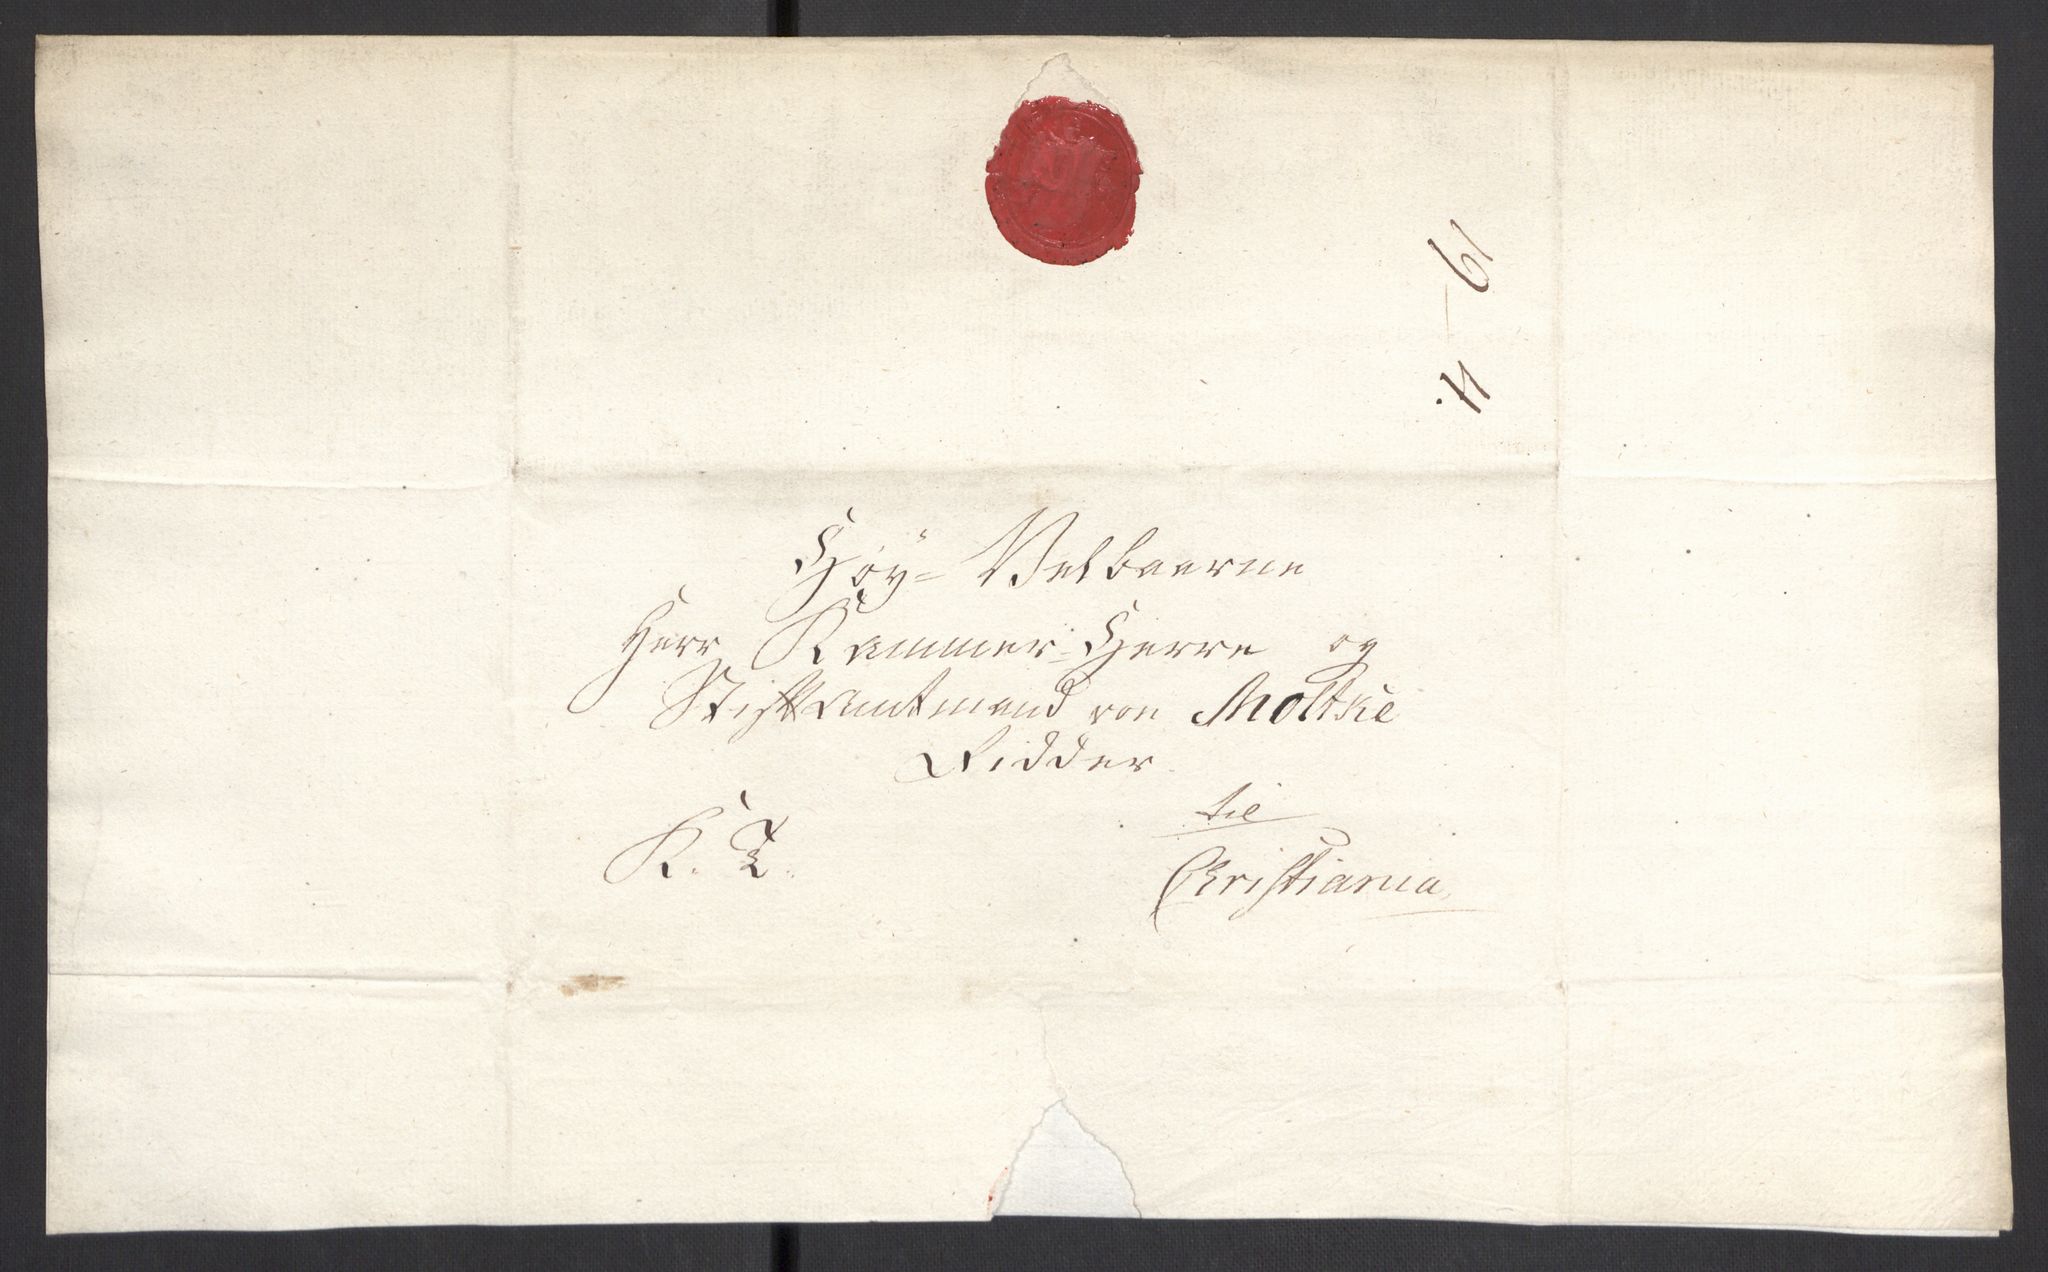 19 - 4.
Höy= Velbaarne
Herr Kammer-Herre og
Stiftamtmand von Moltke
Ridder
K. T.
til
Christiania